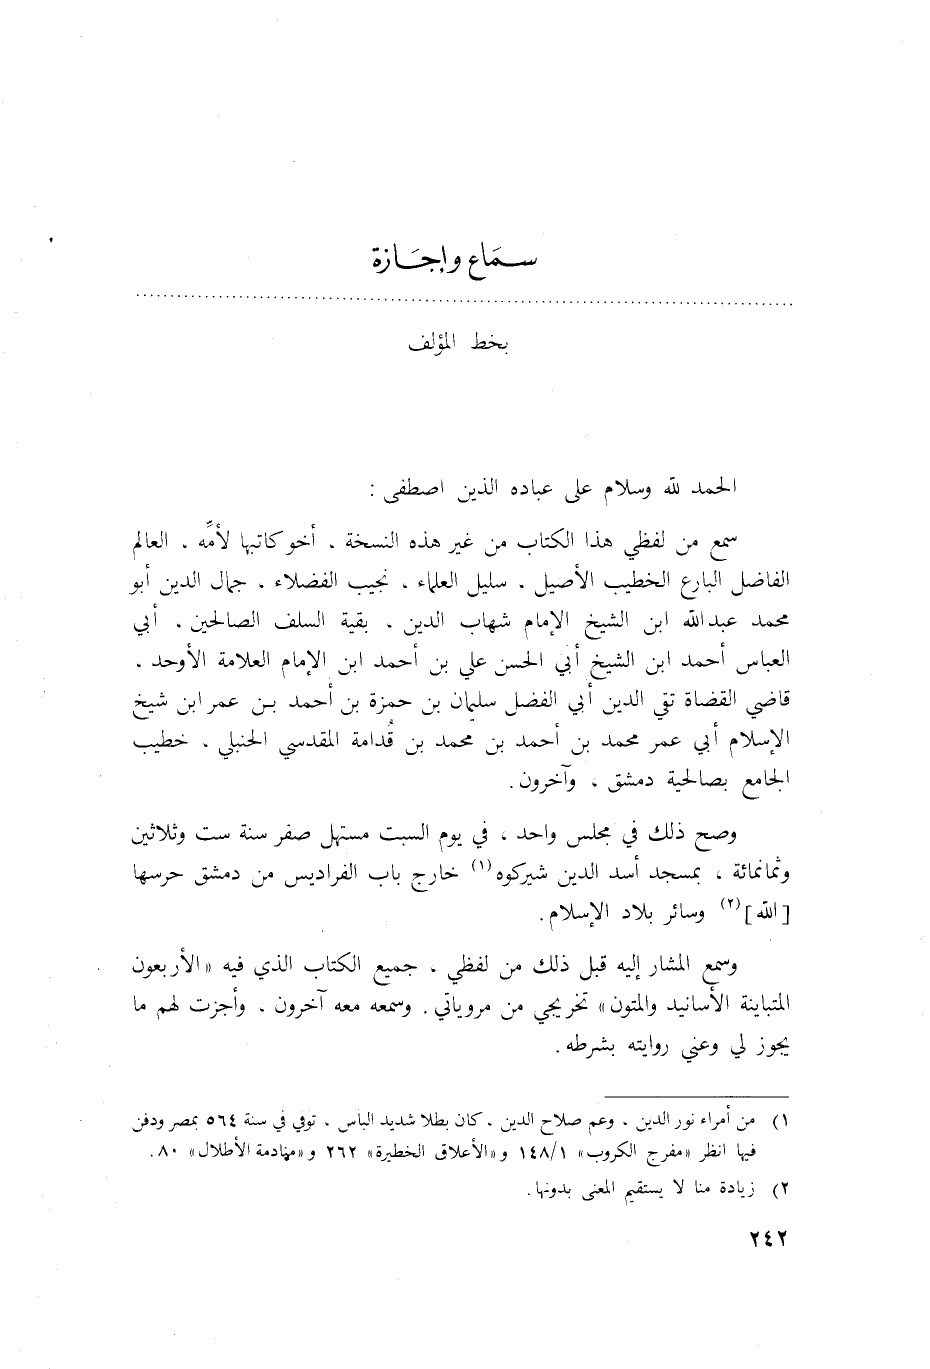 سماع وإجازة
بخط المؤلف
الحمد لله وسلام على عباده الذين اصطفى :
سمع من لفظي هذا الكتاب من غير هذه النسخة ، أخو كاتبها لأمِّه ، العالم
الفاضل البارع الخطيب الأصيل ، سليل العلماء ، نجيب الفضلاء ، جمال الدين أبو
محمد عبدالله ابن الشيخ الإمام شهاب الدين ، بقية السلف الصالحين ، أبي
العباس أحمد ابن الشيخ أبي الحسن علي بن أحمد ابن الإمام العلامة الأوحد ،
قاضي القضاة تقي الدين أبي الفضل سليمان بن حمزة بن أحمد بن عمر ابن شيخ
الإسلام أبي عمر محمد بن أحمد بن محمد بن قُدامة المقدسي الحنبلي ، خطيب
الجامع بصالحية دمشق ، وآخرون .
وصح ذلك في مجلس واحد ، في يوم السبت مستهل صفر سنة ست وثلاثين
وثمانمائة ، بمسجد أسد الدين شيركوه (١) خارج باب الفراديس من دمشق حرسها
[الله] (٢) وسائر بلاد الإسلام .
وسمع المشار إليه قبل ذلك من لفظي ، جميع الكتاب الذي فيه «الأربعون
المتباينة الأسانيد والمتون» تخريجي من مروياتي . وسمعه معه آخرون ، وأجزت لهم ما
يجوز لي وعني روايته بشرطه .
١) من أمراء نور الدين ، وعم صلاح الدين ، كان بطلا شديد الباس ، توفي في سنة ٥٦٤ بمصر ودفن
فيها انظر «مفرج الكروب» ١٤٨/١ و «الأعلاق الخطيرة» ٢٦٢ و «منادمة الأطلال» ٨٠ .
٢) زيادة منا لا يستقيم المعنى بدونها .
٢٤٢